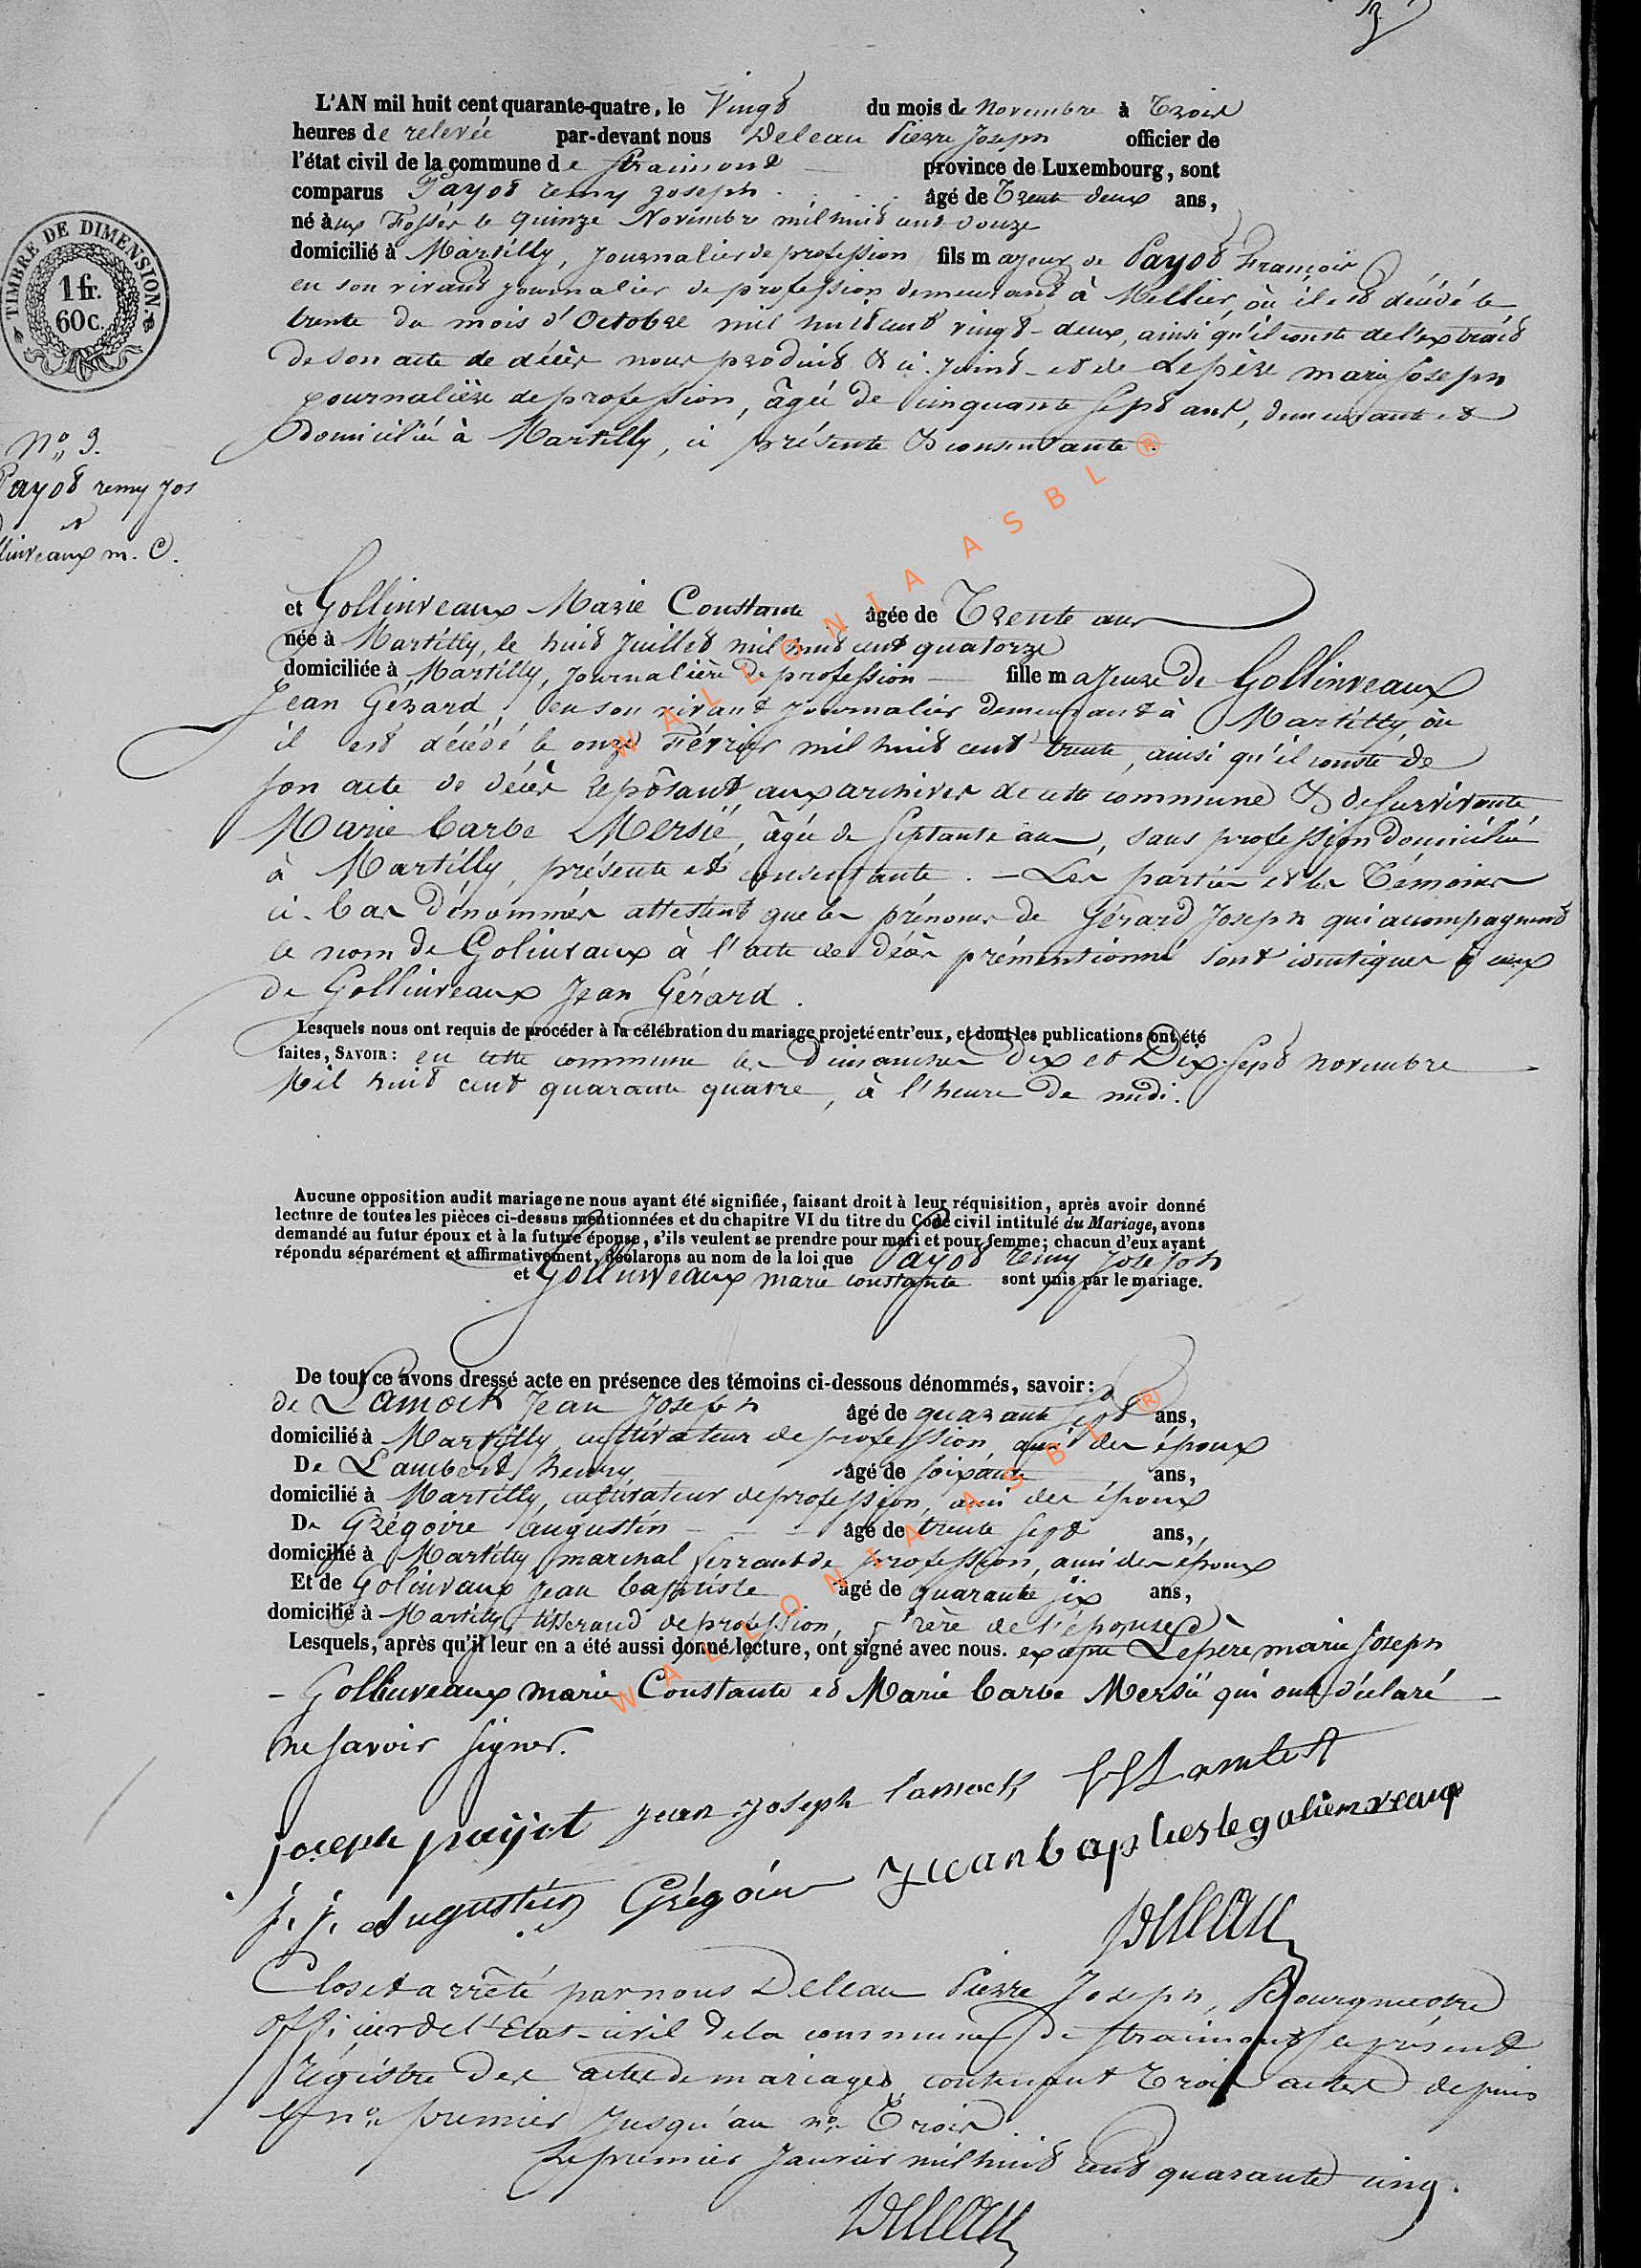 3
L'AN mil huit cent quarante-quatre, le Vingt du mois de Novembre à Trois
heures de relevée par-devant nous Deleau Pierre Joseph officier de
l'état civil de la commune de Straimont province de Luxembourg, sont
comparus Payot remy Joseph âgé de Trente deux ans,
né à aux Fossés le quinze Novembre mil huit cent douze
domicilié à Martilly, Journalier de profession fils majeur de Payot François
en son vivant journalier de profession demeurant à Mellier, où il est décédé le
trente du mois d'Octobre mil huit cent vingt-deux, ainsi qu'il conste de l'extrait
de son acte de décès nous produit & ci-joint et de Lepère marie Joseph
journalière de profession, âgée de cinquante sept ans, demeurante et
domiciliée à Martilly, ci présente & consentante.
TIMBRE DE DIMENSION.
1 fr.
60 c.
No 3.
Payot remy Jos
&
llinveaux m. C.
et Gollinveaux Marie Constante âgée de Trente ans
née à Martilly, le huit Juillet mil huit cent quatorze
domiciliée à Martilly, Journalière de profession fille majeure de Gollinveaux
Jean Gérard, en son vivant journalier demeurant à Martilly, où
il est décédé le onze Février mil huit cent trente, ainsi qu'il conste de
son acte de décès reposant aux archives de cette commune & de survivante
Marie Barbe Mersié, âgée de septante ans, sans profession domiciliée
à Martilly, présente et consentante. - Les parties et les Témoins
ci-bas dénommés attestent que les prénoms de Gérard Joseph qui accompagnent
le nom de Golinvaux à l'acte de décès prémentionné sont identiques à ceux
de Gollinveaux Jean Gérard.
Lesquels nous ont requis de procéder à la célébration du mariage projeté entr'eux, et dont les publications ont été
faites, SAVOIR: en cette commune les Dimanches dix et Dix-sept novembre
Mil huit cent quarante quatre, à l'heure de midi.
Aucune opposition audit mariage ne nous ayant été signifiée, faisant droit à leur réquisition, après avoir donné
lecture de toutes les pièces ci-dessus mentionnées et du chapitre VI du titre du Code civil intitulé du Mariage, avons
demandé au futur époux et à la future épouse, s'ils veulent se prendre pour mari et pour femme; chacun d'eux ayant
répondu séparément et affirmativement, déclarons au nom de la loi que Payot remy Joseph
et Gollinveaux marie constante sont unis par le mariage.
De tout ce avons dressé acte en présence des témoins ci-dessous dénommés, savoir:
de Lamock Jean Joseph âgé de quarante sept ans,
domicilié à Martilly cultivateur de profession, ami des époux
De Lambert henry âgé de soixante ans,
domicilié à Martilly, cultivateur de profession, ami des époux
De Grégoire augustin âgé de trente sept ans,
domicilié à Martilly marechal ferrant de profession, ami des époux
Et de Golinvaux Jean baptiste âgé de quarante six ans,
domicilié à Martilly, tisserand de profession, frère de l'épouse
Lesquels, après qu'il leur en a été aussi donné lecture, ont signé avec nous. excepté Lepère marie Joseph
- Gollinveaux marie Constante et Marie barbe Mersié qui ont déclaré
ne savoir signer.
joseph payjot jean joseph lamock H Lambert
j. j. Augustin Grégoire jean baptieste golienveaux
Deleau
Clos et arrêté par nous Deleau Pierre Joseph, Bourgmestre
Officier de l'Etat-civil de la commune de Straimont le présent
régistre des actes de mariages contenant Trois actes depuis
le no premier jusqu'au no Trois
Le premier Janvier mil huit cent quarante cinq.
Deleau
WALLONIA ASBL ®
WALLONIA ASBL ®